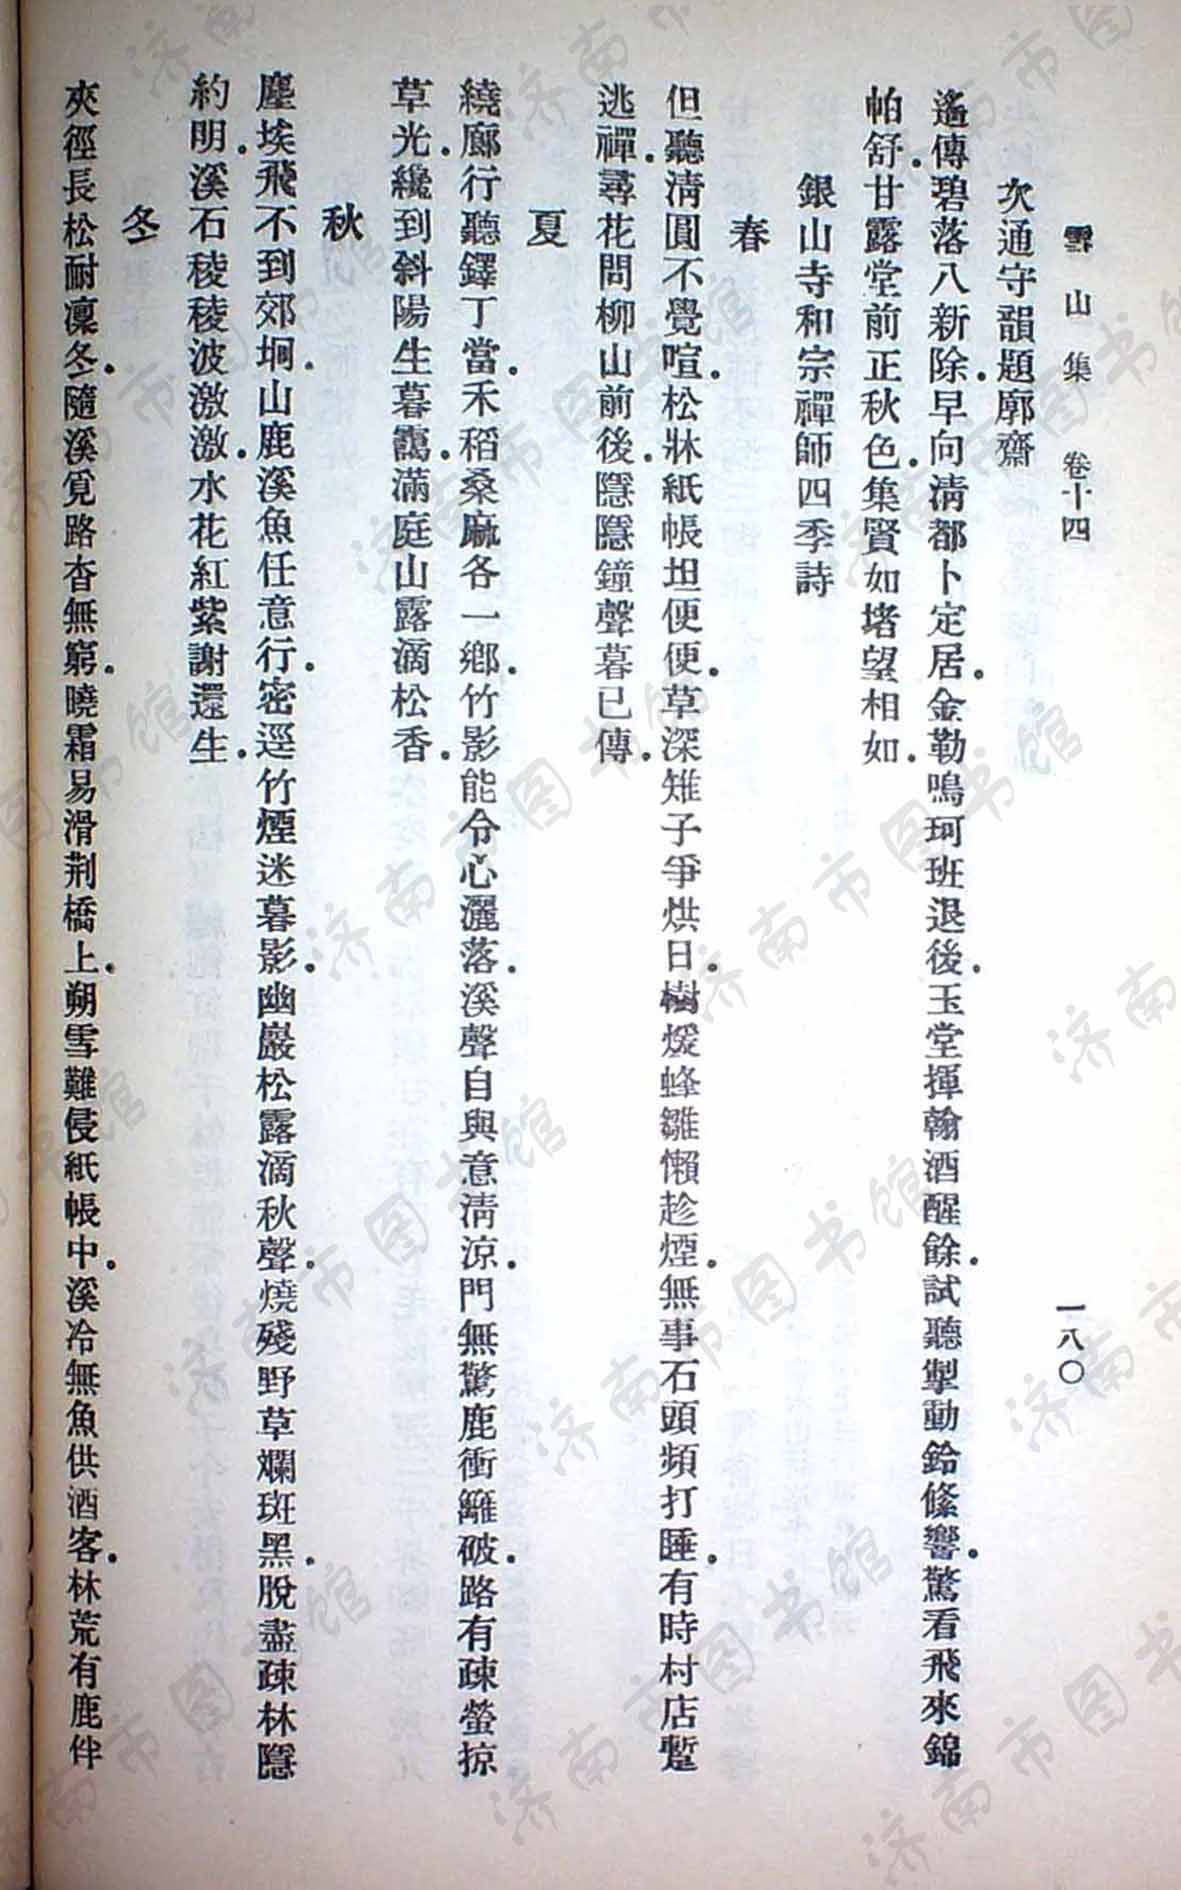 雪山集　卷十四　一八〇
次通守韻題廓齋
遙傳碧落八新除。早向清都卜定居。金勒鳴珂班退後。玉堂揮翰酒醒餘。試聽掣動鈴絛響。驚看飛來錦
帕舒。甘露堂前正秋色。集賢如堵望相如。
銀山寺和宗禪師四季詩
春
但聽清圓不覺喧。松牀紙帳坦便便。草深雉子爭烘日。樹煖蜂雛懶趁煙。無事石頭頻打睡。有時村店蹔
逃禪。尋花問柳山前後。隱隱鐘聲暮已傳。
夏
繞廊行聽鐸丁當。禾稻桑麻各一鄉。竹影能令心灑落。溪聲自與意清涼。門無驚鹿衝籬破。路有疎螢掠
草光。纔到斜陽生暮靄。滿庭山露滴松香。
秋
塵埃飛不到郊坰。山鹿溪魚任意行。密逕竹煙迷暮影。幽巖松露滴秋聲。燒殘野草斕斑黑。脫盡疎林隱
約明。溪石稜稜波激激。水花紅紫謝還生。
冬
夾徑長松耐凜冬。隨溪覓路杳無窮。曉霜易滑荆橋上。朔雪難侵紙帳中。溪冷無魚供酒客。林荒有鹿伴